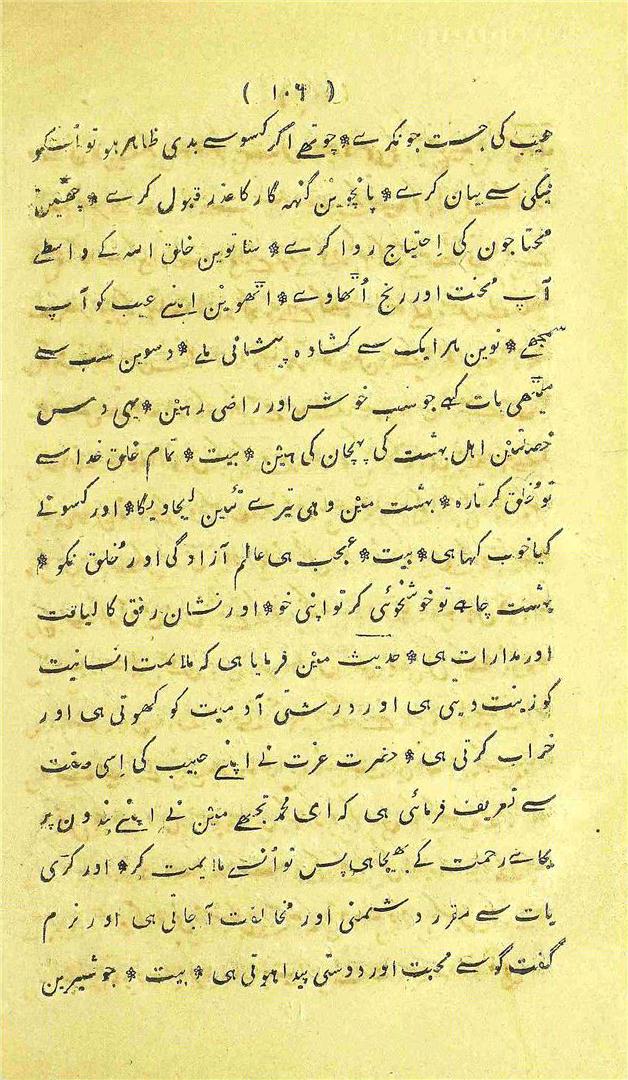 ( ۱۰۶ )
عیب کی جست جو نکرے * چوتھے اگر کسو سے بدی ظاہر ہو تو اُسکو
نیکی سے بیان کرے * پانچوین گنہہ گار کا عذر قبول کرے * چھٹین
محتاجون کی اِحتیاج روا کرے * ساتوین خلق اللہ کے واسطے
آپ محنت اور رنج اُٹھاوے * اٹھوین اپنے عیب کو آپ
سمجھے * نوین ہر ایک سے کشادہ پیشانی ملے * دسوین سب سے
میٹھی بات کہے جو سب خوش اور راضی رہین * یہی دس
خصلتین اہل بہشت کی پہچان کی ہین * بیت * تمام خلق خدا سے
تو خُلق کرتا رہ * بہشت مین وہی تیرے تئین لیجاویگا * اور کسو نے
کیا خوب کہا ہی * بیت * عجب ہی عالم آزادگی اور خُلق نکو *
بہشت چاہے تو خوشخوئی کر تو اپنی خو * اور نشان رفق کا لیاقت
اور مدارات ہی * حدیث مین فرمایا ہی کہ ملایمت انسانیت
کو زینت دیتی ہی اور درشتی آدمیت کو کھوتی ہی اور
خراب کرتی ہی * حضرت عزت نے اپنے حبیب کی اِسی صفت
سے تعریف فرمائی ہی کہ ای محمد تجھے مین نے اپنے بندون پر
بجاے رحمت کے بھیجا ہی پس تو اُنسے ملایمت کر * اور کڑی
بات سے مقرر دشمنی اور مخالفت آ جاتی ہی اور نرم
گفت گو سے محبت اور دوستی پیدا ہوتی ہی * بیت * جو شیرین